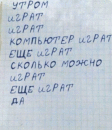 УТРОМ
ИГРАТ
ИГРАТ
КОМПЬЮТЕР ИГРАТ
ЕЩЕ ИГРАТ
СКОЛЬКО МОЖНО
ИГРАТ
ЕЩЕ ИГРАТ
ДА